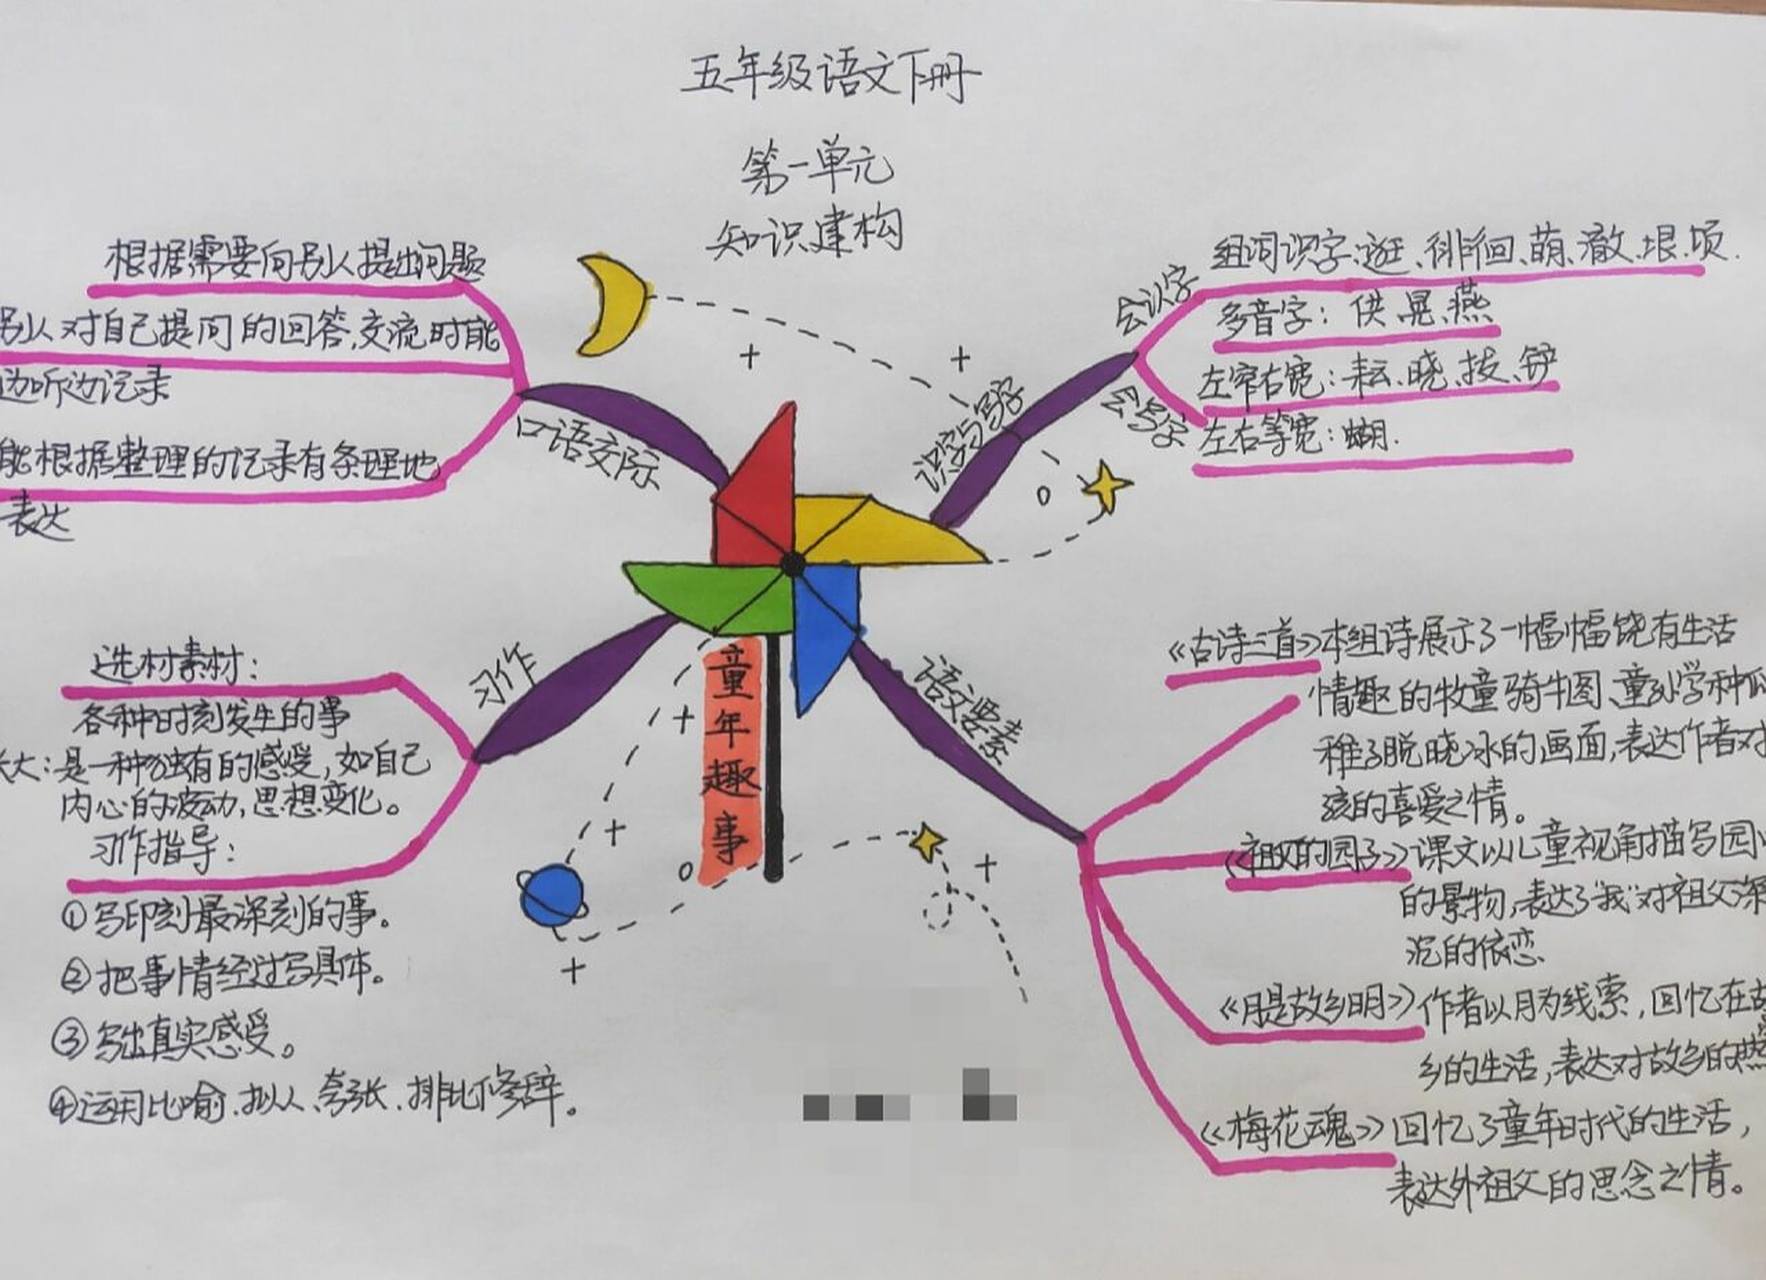 五年级语文下册
第一单元
知识建构
根据需要向别人提出问题
别人对自己提问的回答,交流时能
边听边记录
能根据整理的记录有条理地
表达
口语交际
识字与写字
会认字
组词识字:逛、徘徊、萌、澈、垠、顷.
多音字: 供、晃、燕
会写字
左窄右宽:耘、晓、拔、铲
左右等宽:蝴.
童年趣事
习作
选材素材:
各种时刻发生的事
长大:是一种独有的感受,如自己
内心的波动,思想变化。
习作指导:
①写印刻最深刻的事。
②把事情经过写具体。
③写出真实感受。
④运用比喻、拟人、夸张、排比修辞。
语文要素
《古诗三首》本组诗展示了一幅幅饶有生活
情趣的牧童骑牛图、童孙学种瓜
稚子脱晓冰的画面,表达作者对
孩的喜爱之情。
《祖父的园子》课文以儿童视角描写园
的景物,表达了“我”对祖父深
沉的依恋
《月是故乡明》作者以月为线索,回忆在故
乡的生活,表达对故乡的热
《梅花魂》回忆了童年时代的生活,
表达外祖父的思念之情。